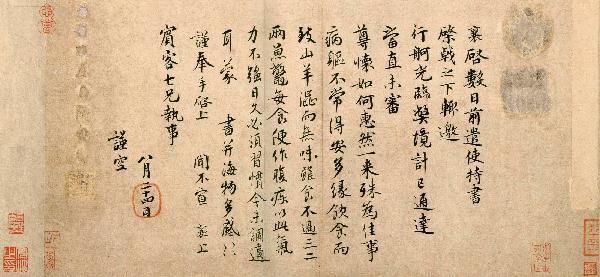 襄啓數日前遣使持書
棨戟之下輒邀
行舸光臨弊境計已通達
當直未審
尊懷如何惠然一來殊為佳事
病軀不常得安多緣飲食而
致山羊漚而無味雖食不過三二
兩魚鼈每食便作腹疾以此氣
力不強日久必須習慣今未調適
耳蒙 書并海物多感〻
謹奉手啓上 聞不宣 襄上
賓客七兄執事
八月廿四日
謹空